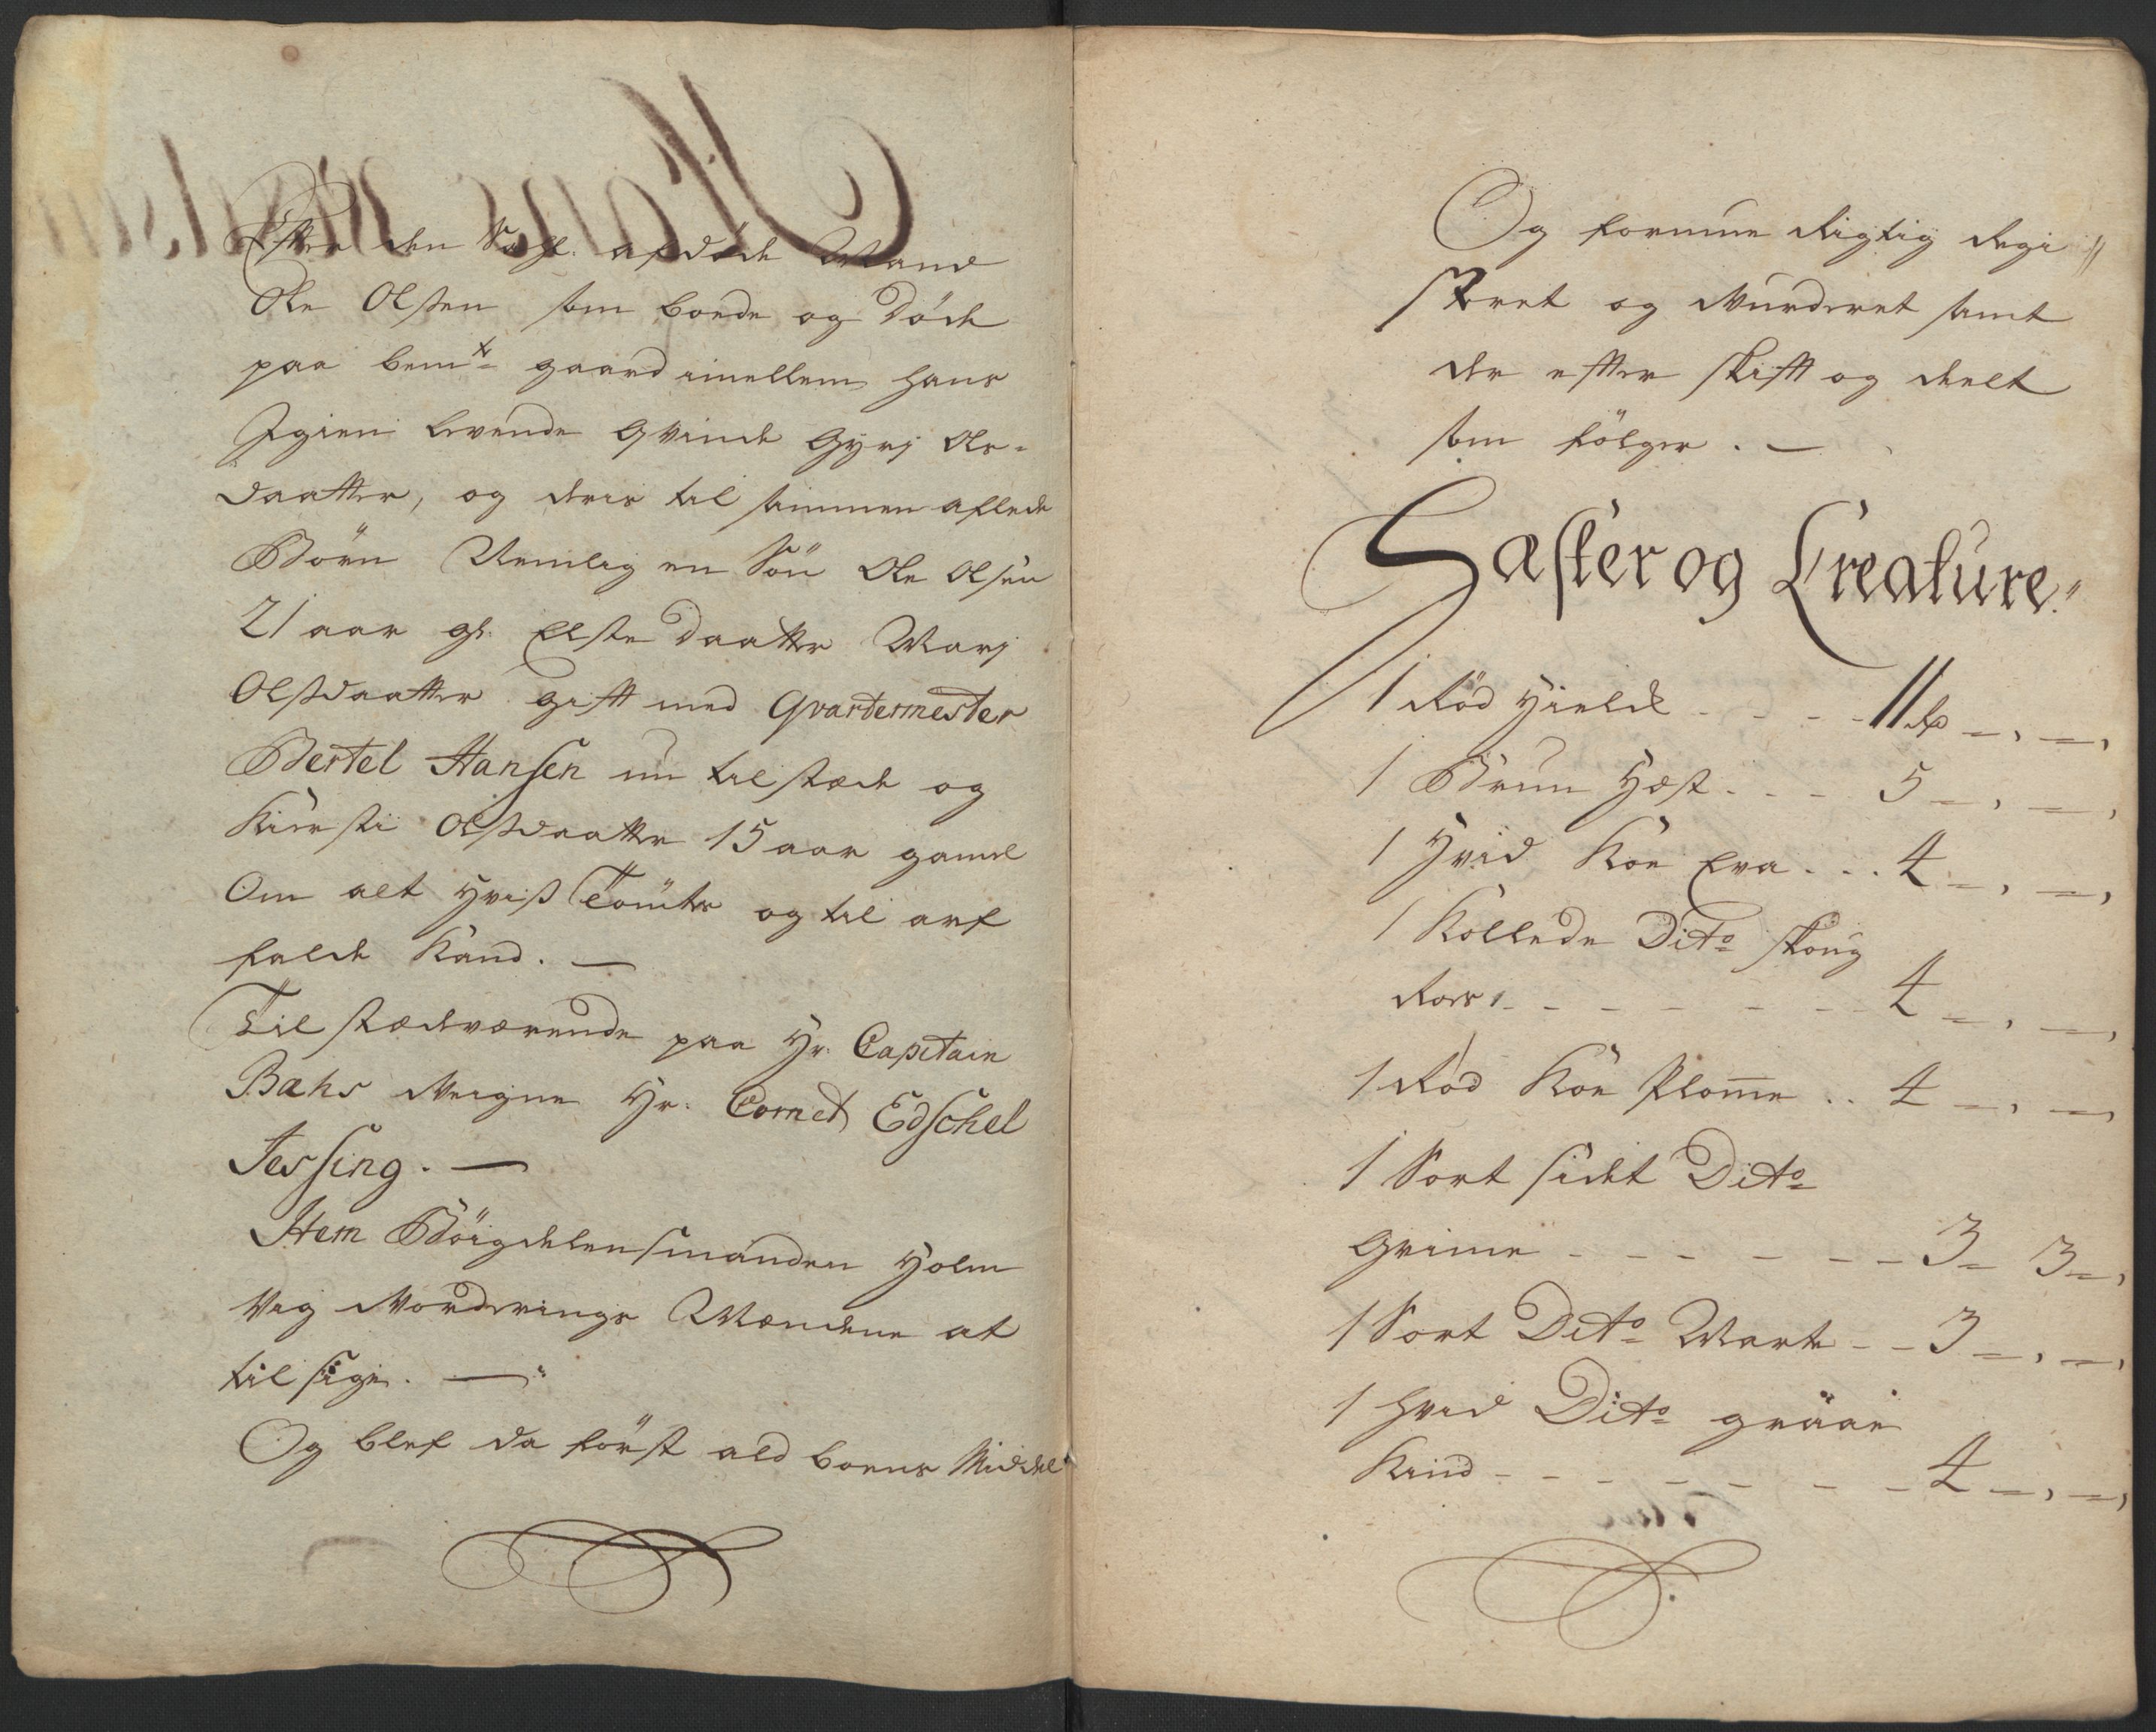 Efter den Sahl: afdöde Mand
Ole Olsen som boede og Döde
paa bemte gaard imellem hans
Igien levende Qvinde Gyri Ols-
daatter, og deris til sammen aflede
Börn Nemlig en Sön Ole Olsen
21 aar gl: Elste daatter Mari
Olsdaatter gift med Qvartermester
Bertel Hansen nu tilstæde og
Kiersti Olsdaatter 15 aar gamel
Om alt hvis Comter og til arf
falde kand. —
Til stædeværende paa Hr: Capitain
Bæhs Veigne Hr: Cornet Edschel
Jessing. —
Item Böigdelensmanden Holm
Vig Vorderings Mændene at
til sige. —
Og blef da först ald boens Middel
Og formue Rigtig Regi=
streret og Vurderet samt
der efter skift og deelt
som fölger. —
Hæster og Creature.
1 Röd Hielde - - - - 11 Rd — , — ,
1 Brun Hest - - - 5 — , — ,
1 Hvid Koe Eva . . . 4 — , — ,
1 Kollede Dito skoug
Roes - - - - - - - 4 — , — ,
1 Röd Koe Plome . . 4 — , — ,
1 Sort sidet Dito
Grime - - - - - - - 3 — 3 — ,
1 Sort Dito Mærke - - 3 — , — ,
1 hvid Dito graae
Kind - - - - - - - 4 — , — ,